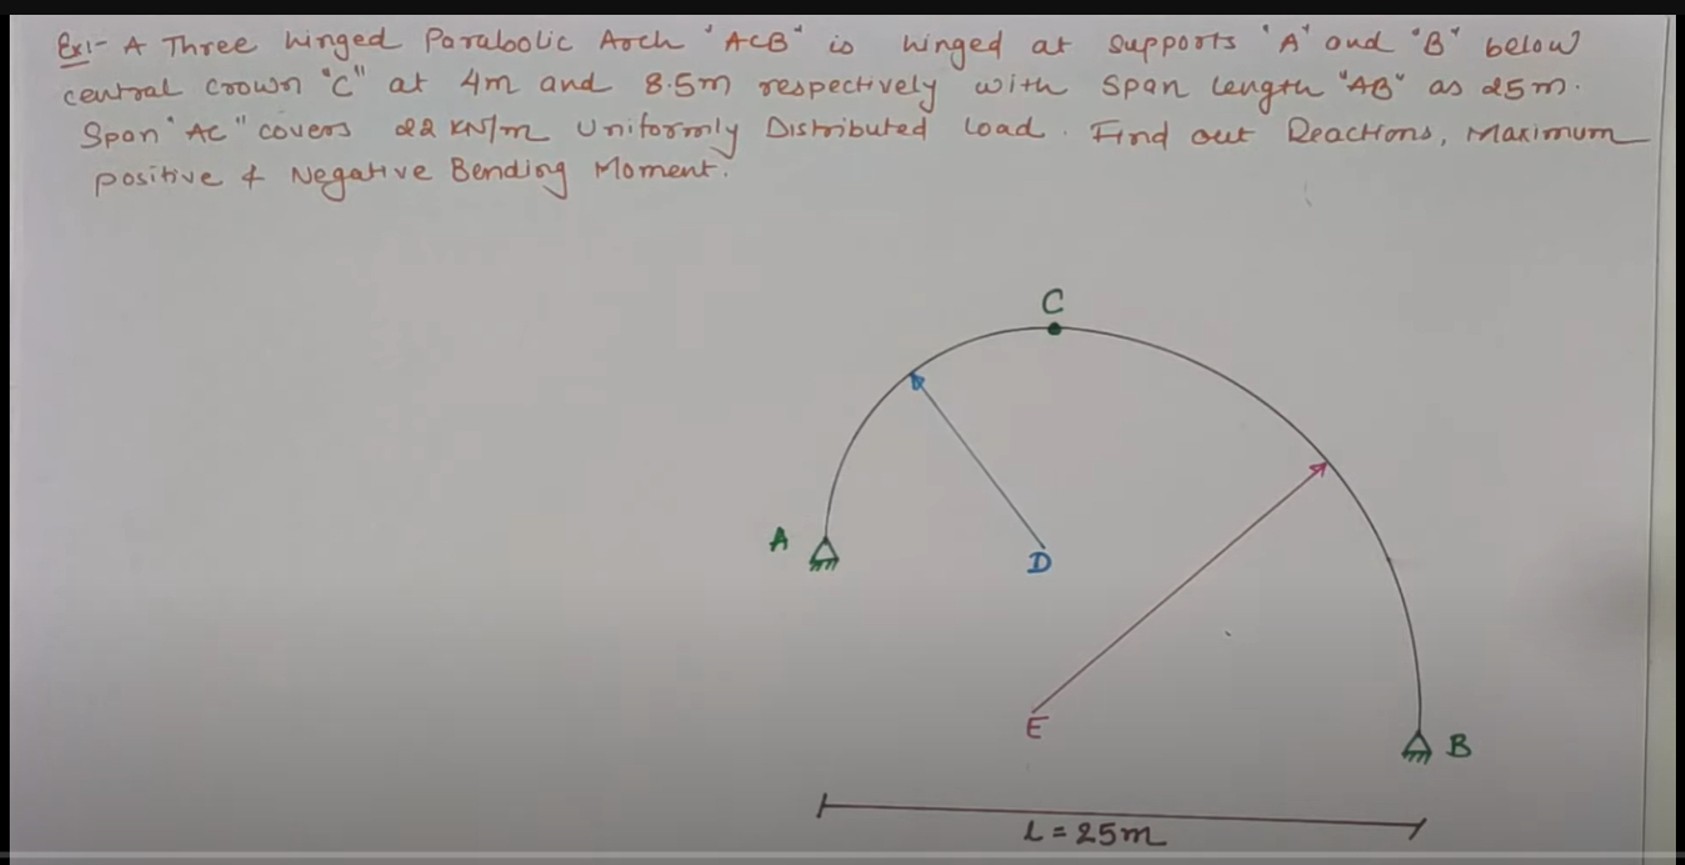 Ex:- A Three hinged Parabolic Arch "ACB" is hinged at supports "A" and "B" below
central crown "C" at 4m and 8.5m respectively with Span length "AB" as 25m.
Span "AC" covers 22 KN/m Uniformly Distributed load. Find out Reactions, Maximum
positive & Negative Bending Moment.
C
A
D
E
B
L = 25m